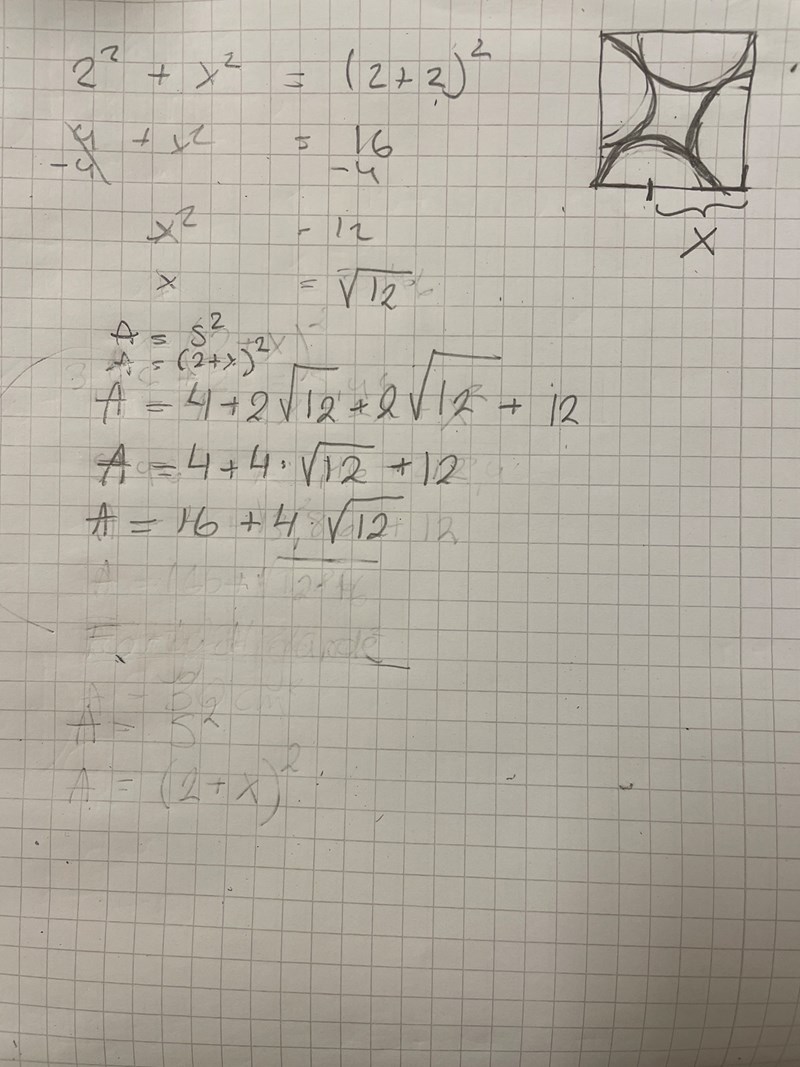 2² + x² = (2+2)²
4 + x² = 16
-4 -4
x² - 12
x = √12
X
A = s²
A = (2+x)²
A = 4+2√12+2√12 + 12
A = 4+4·√12 +12
A = 16 +4·√12
A = s²
A = (2+x)²